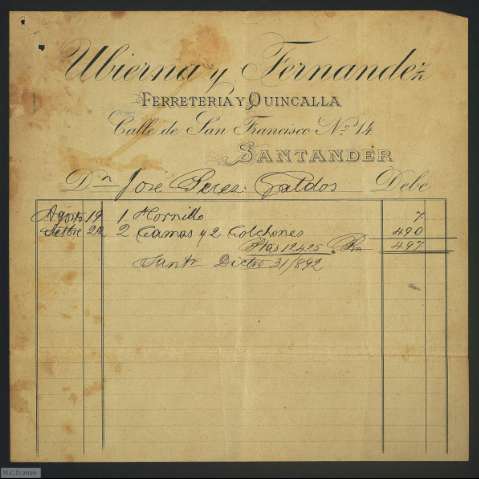 Ubierna y Fernandez
FERRETERÍA Y QUINCALLA
Calle de San Francisco Nº 14
SANTANDER
Dn José Perez Galdos Debe
Agosto 19 1 Hornillo 7
Setbre 20 2 Camas y 2 Colchones 490
Ptas 124,25 Rn 497
Santr Dicre 31/892